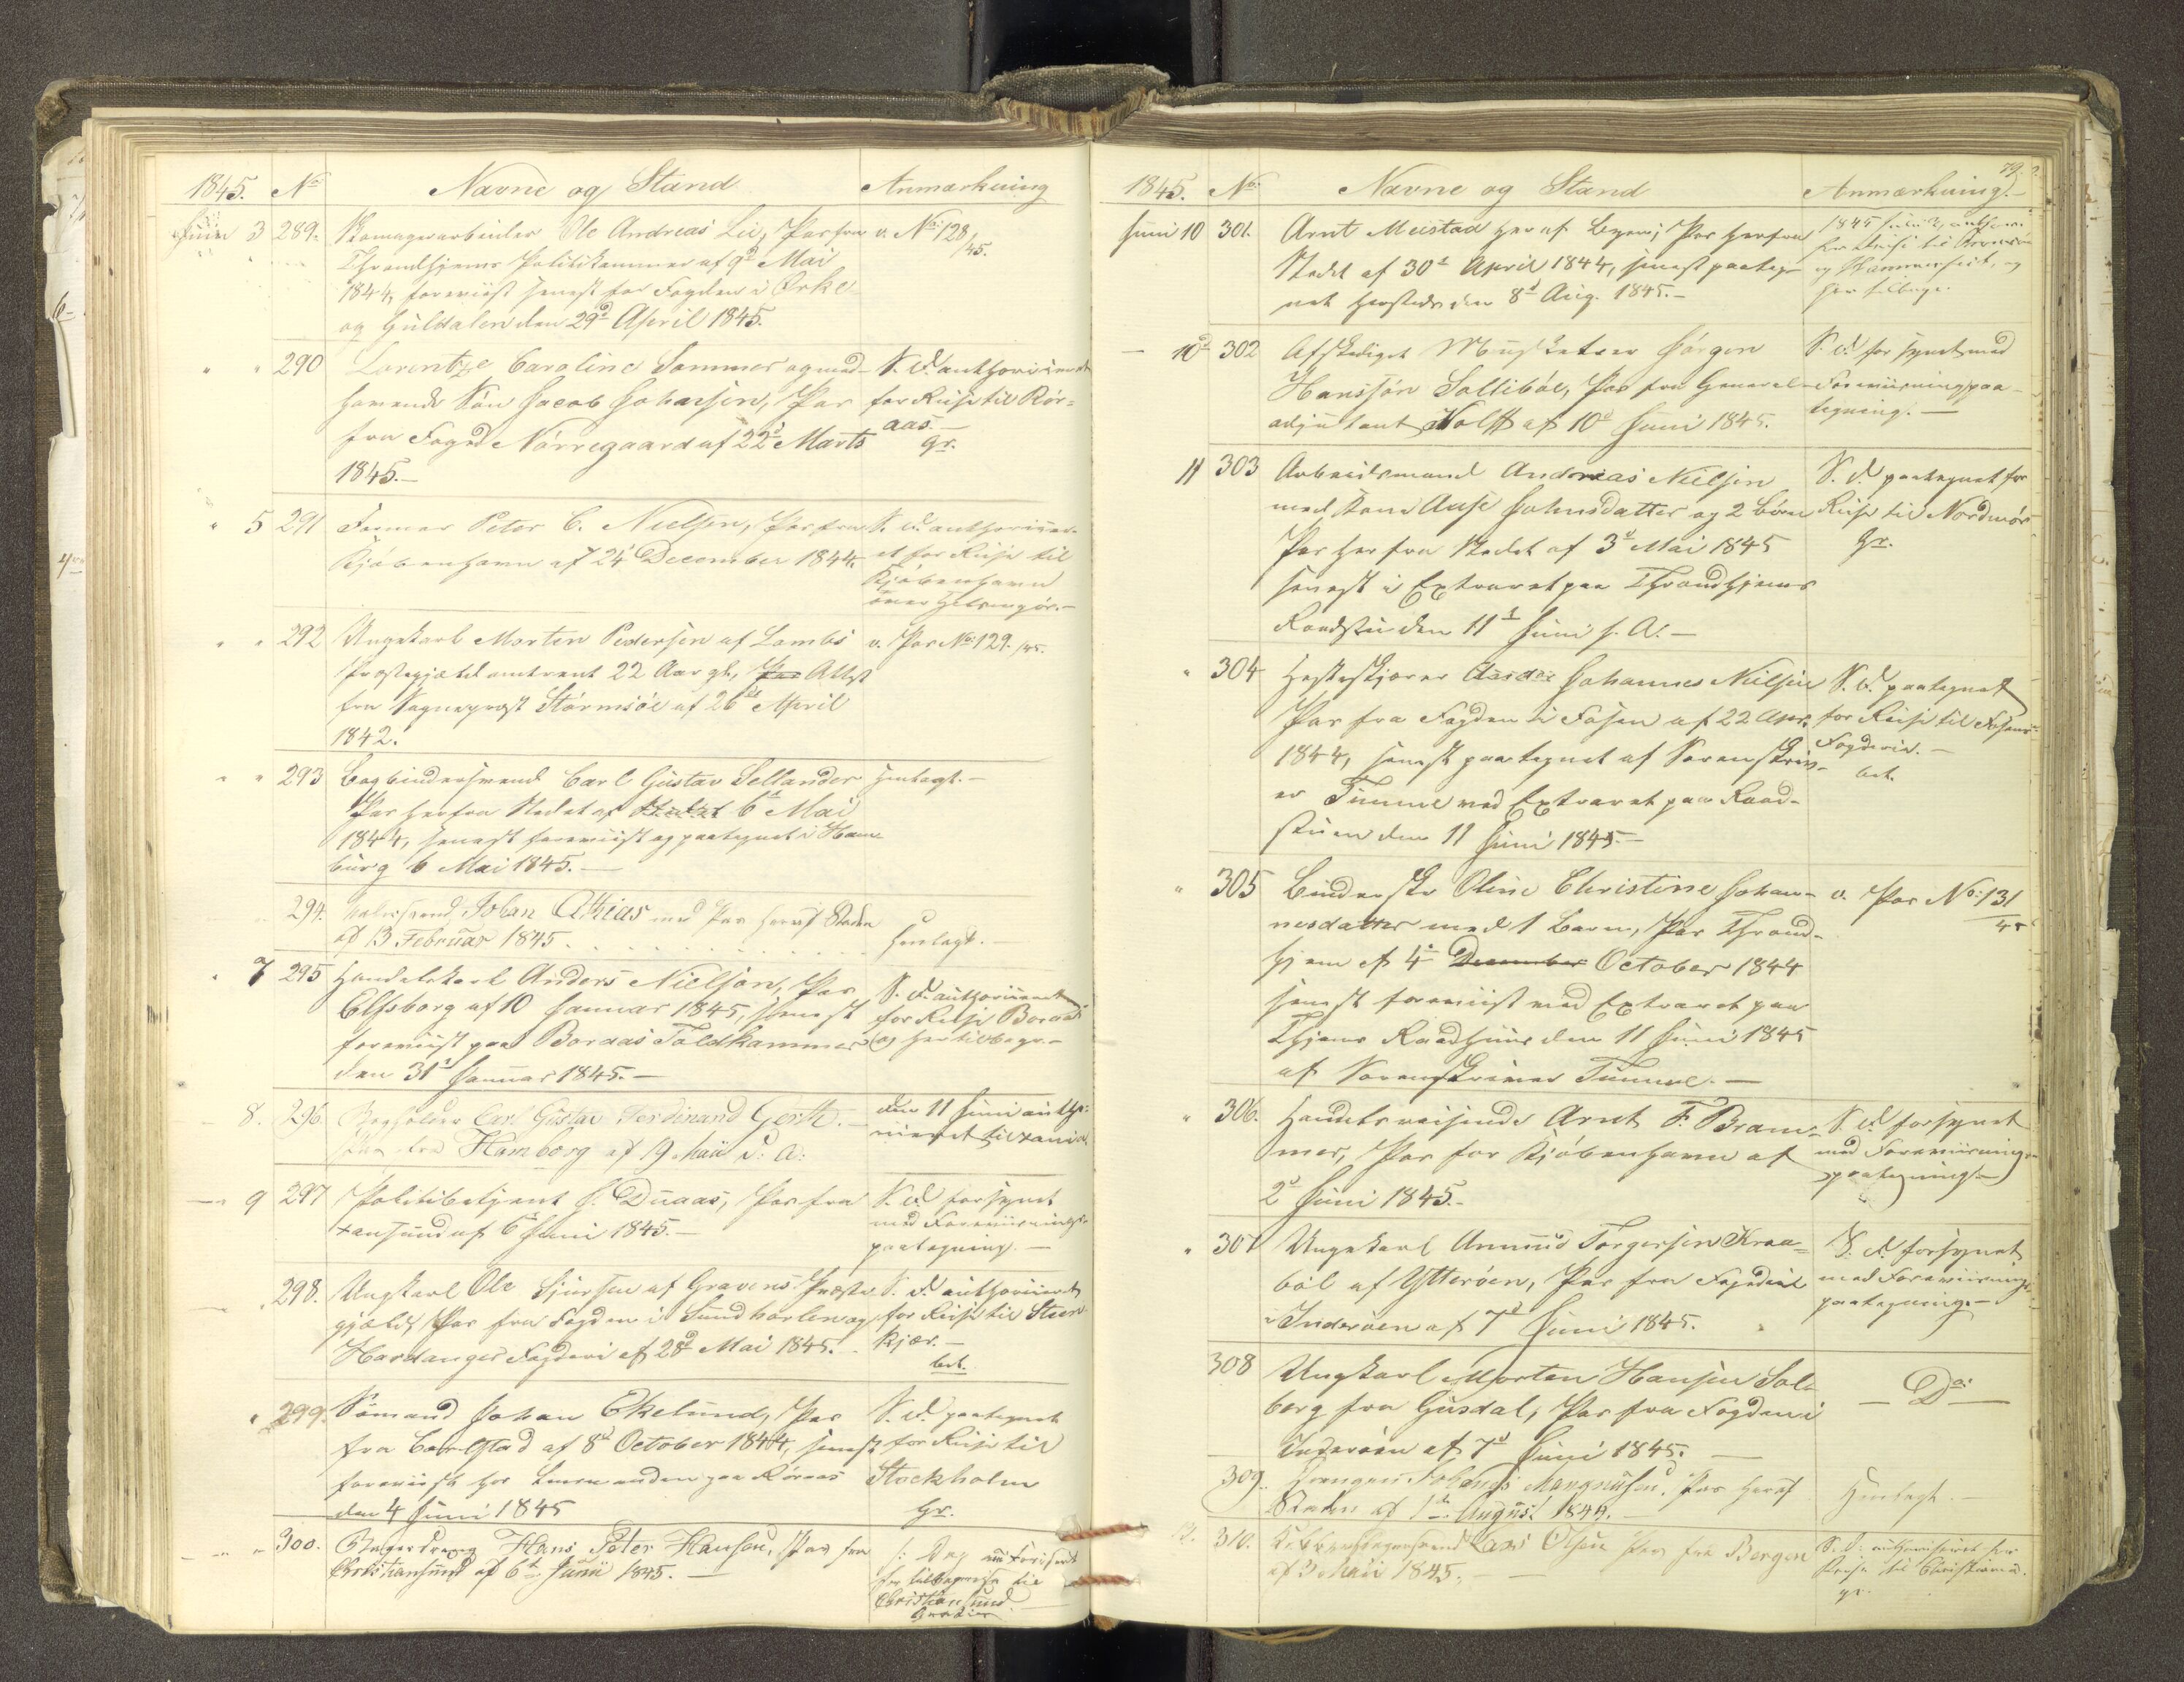 1845. No Navne og Stand Anmærkning
Juni 3 289. Skomagerarbeider Ole Andreas Lie, Pas fra v. No 128/45.
Throndhjems Politikammer af 9d Mai
1844, foreviist senest for Fogden i Orke-
og Guldalen den 29d April 1845.
" " 290 Lorentze Caroline Sommer og med-
havende Søn Jacob Johnsen, Pas
fra Foged Nørregaard af 22d Marts
1845.—
S. D. authoriseret
for Reise til Rør-
aas.—
gr.
" 5 291 Peter C. Nielsen, Pas fra
Kjøbenhavn af 24 December 1844.
S. D. authoriser-
et for Reise til
Kjøbenhavn
over Helsingør.—
" " 292 Ungkarl Morten Pedersen af
Præstegjæld omtrent 22 Aar gl., Pas Attest
fra Sogneprest Stormsöe af 26d April
1842.
v. Pas No 129. /45.
" " 293 Bogbindersvend Carl Gustav Sellander
Pas herfra Stedet af 6d Mai
1844, senest foreviist og paategnet i Ham-
burg 6 Mai 1845.—
henlagt.—
294. Malersvend Johan Athias med Pas heraf Staden
af 13 Februar 1845.
henlagt.—
" 7 295 Handelskarl Anders Nielson, Pas
Elfsborg af 10 Januar 1845, senest
foreviist paa Boraas Toldkammer
den 31d Januar 1845.—
S. D. authoriseret
for Reise Boraas
og her tilbage.—
8. 296. Bogholder Carl Gustav Ferdinand Gerth.
Pas fra Hamborg af 19 Mai d: A:
den 11 Juni autho-
riseret til xania.
" 9 297 Politibetjent J. Duaas, Pas fra
xansund af 6d Juni 1845.—
S. D. forsynet
med Foreviisnings-
paategning.—
" 298. Ungkarl Ole Sjursen af Gravens Præste-
gjæld, Pas fra Fogden i Sundhorlen og
Hardanger Fogderi af 28d Mai 1845.
S. D. authoriseret
for Reise til Steen-
kjær.—
bet.
" 299. Sømand Johan Ekelund, Pas
fra Carlstad af 8d October 1844, senest
foreviist for Lensmanden paa Röraas
den 4 Juni 1845
S. D. paategnet
for Reise til
Stockholm
gr.
" 300. Hans Peter Hansen, Pas fra
Christiansund af 6te Junii 1845.—
S: Dag autoriseret
for tilbagereise til
Christiansund
Gratis
79.
1845. No Navne og Stand Anmærkning.—
Juni 10 301. Arnt Meistad her af Byen; Pas herfra
Stedet af 30d April 1844, senest paateg-
net hersteds den 8d Aug. 1845.—
1845 Juni authori.
for Reise til Tromsøe
og Hammerfest, og
her tilbage.
— 10d 302 Afskediget Musketeer Jörgen
Hanssön Solliböe, Pas fra General-
adjutant Wolff af 10d Juni 1845.
S. D. forsynet med
Foreviisningspaa-
tegning.—
11 303 Arbeidsmand Andreas Nielsen
med Kone Aase Johnsdatter og 2 Börn
Pas herfra Stedet af 3d Mai 1845
senest i Extraret paa Throndhjems
Raadstue den 11d Juni s. A.—
S. D. paategnet for
Reise til Nordmør
gr.
" 304 Hesteskjærer Johannes Nielsen
Pas fra Fogden i Fosen af 22 Apr.
1844, senest paategnet af Sorenskriv-
er Timme ved Extraret paa Raad-
stuen den 11 Juni 1845.—
S. D. paategnet
for Reise til Fosens
Fogderie.—
bet.
" 305 Binderske Oline Christine Johan-
nesdatter med 1 Barn, Pas Thrond-
hjem af 4d December October 1844
senest foreviist med Extraret paa
Thjems Raadhuus den 11 Juni 1845
af Sorenskriver Timme.—
v. Pas No: 131/45
" 306. Handelsreisende Arnt F. Bram-
mer, Pas for Kjöbenhavn af
2d Juni 1845.—
S. D. forsynet
med Foreviisnings-
paategning.—
" 307 Ungkarl Ammus Torgersen Kraa-
böl af Ytteröen, Pas fra Fogden
i Inderöen af 7d Juni 1845.
S. D. forsynet
med Foreviisnings-
paategning.—
308 Ungkarl Morten Hansen Sol-
berg fra Gusdal, Pas fra Fogden i
Inderöen af 7d Juni 1845.—
— Do —
309. Johannes Mangnusen, Pas heraf
Staden af 1te August 1844.—
Henlagt.—
12. 310. Lars Olsen Pas fra Bergen
af 3 Mai 1845.—
S. D: authoriseret for
Reise til Christiania.
gr.